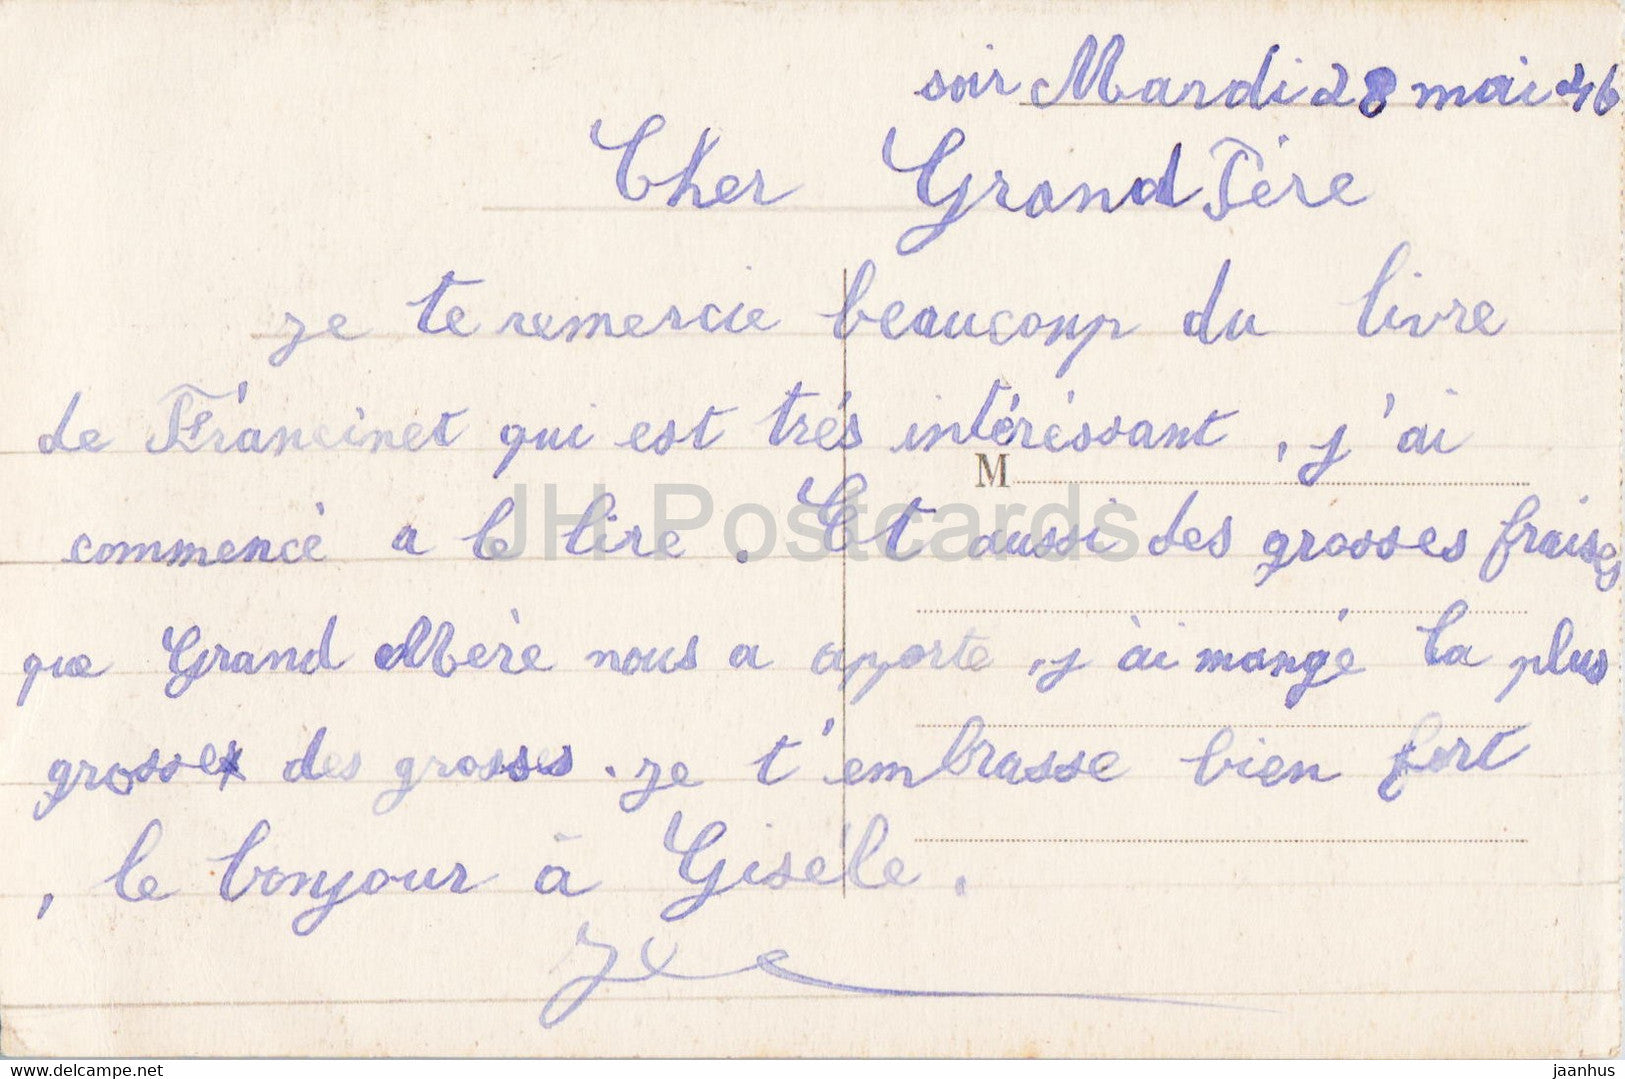 soir Mardi 28 mai 46
Cher Grand Père
je te remercie beaucoup du livre
de Francinet qui est trés intéréssant, j'ai
M
commencé a le lire. Et aussi des grosses fraises
JH Postcards
que Grand Mère nous a aporte, j'ai mangé la plus
grosse des grosses. je t'embrasse bien fort
, le bonjour à Gisèle.
delcampe.net
jaanhus